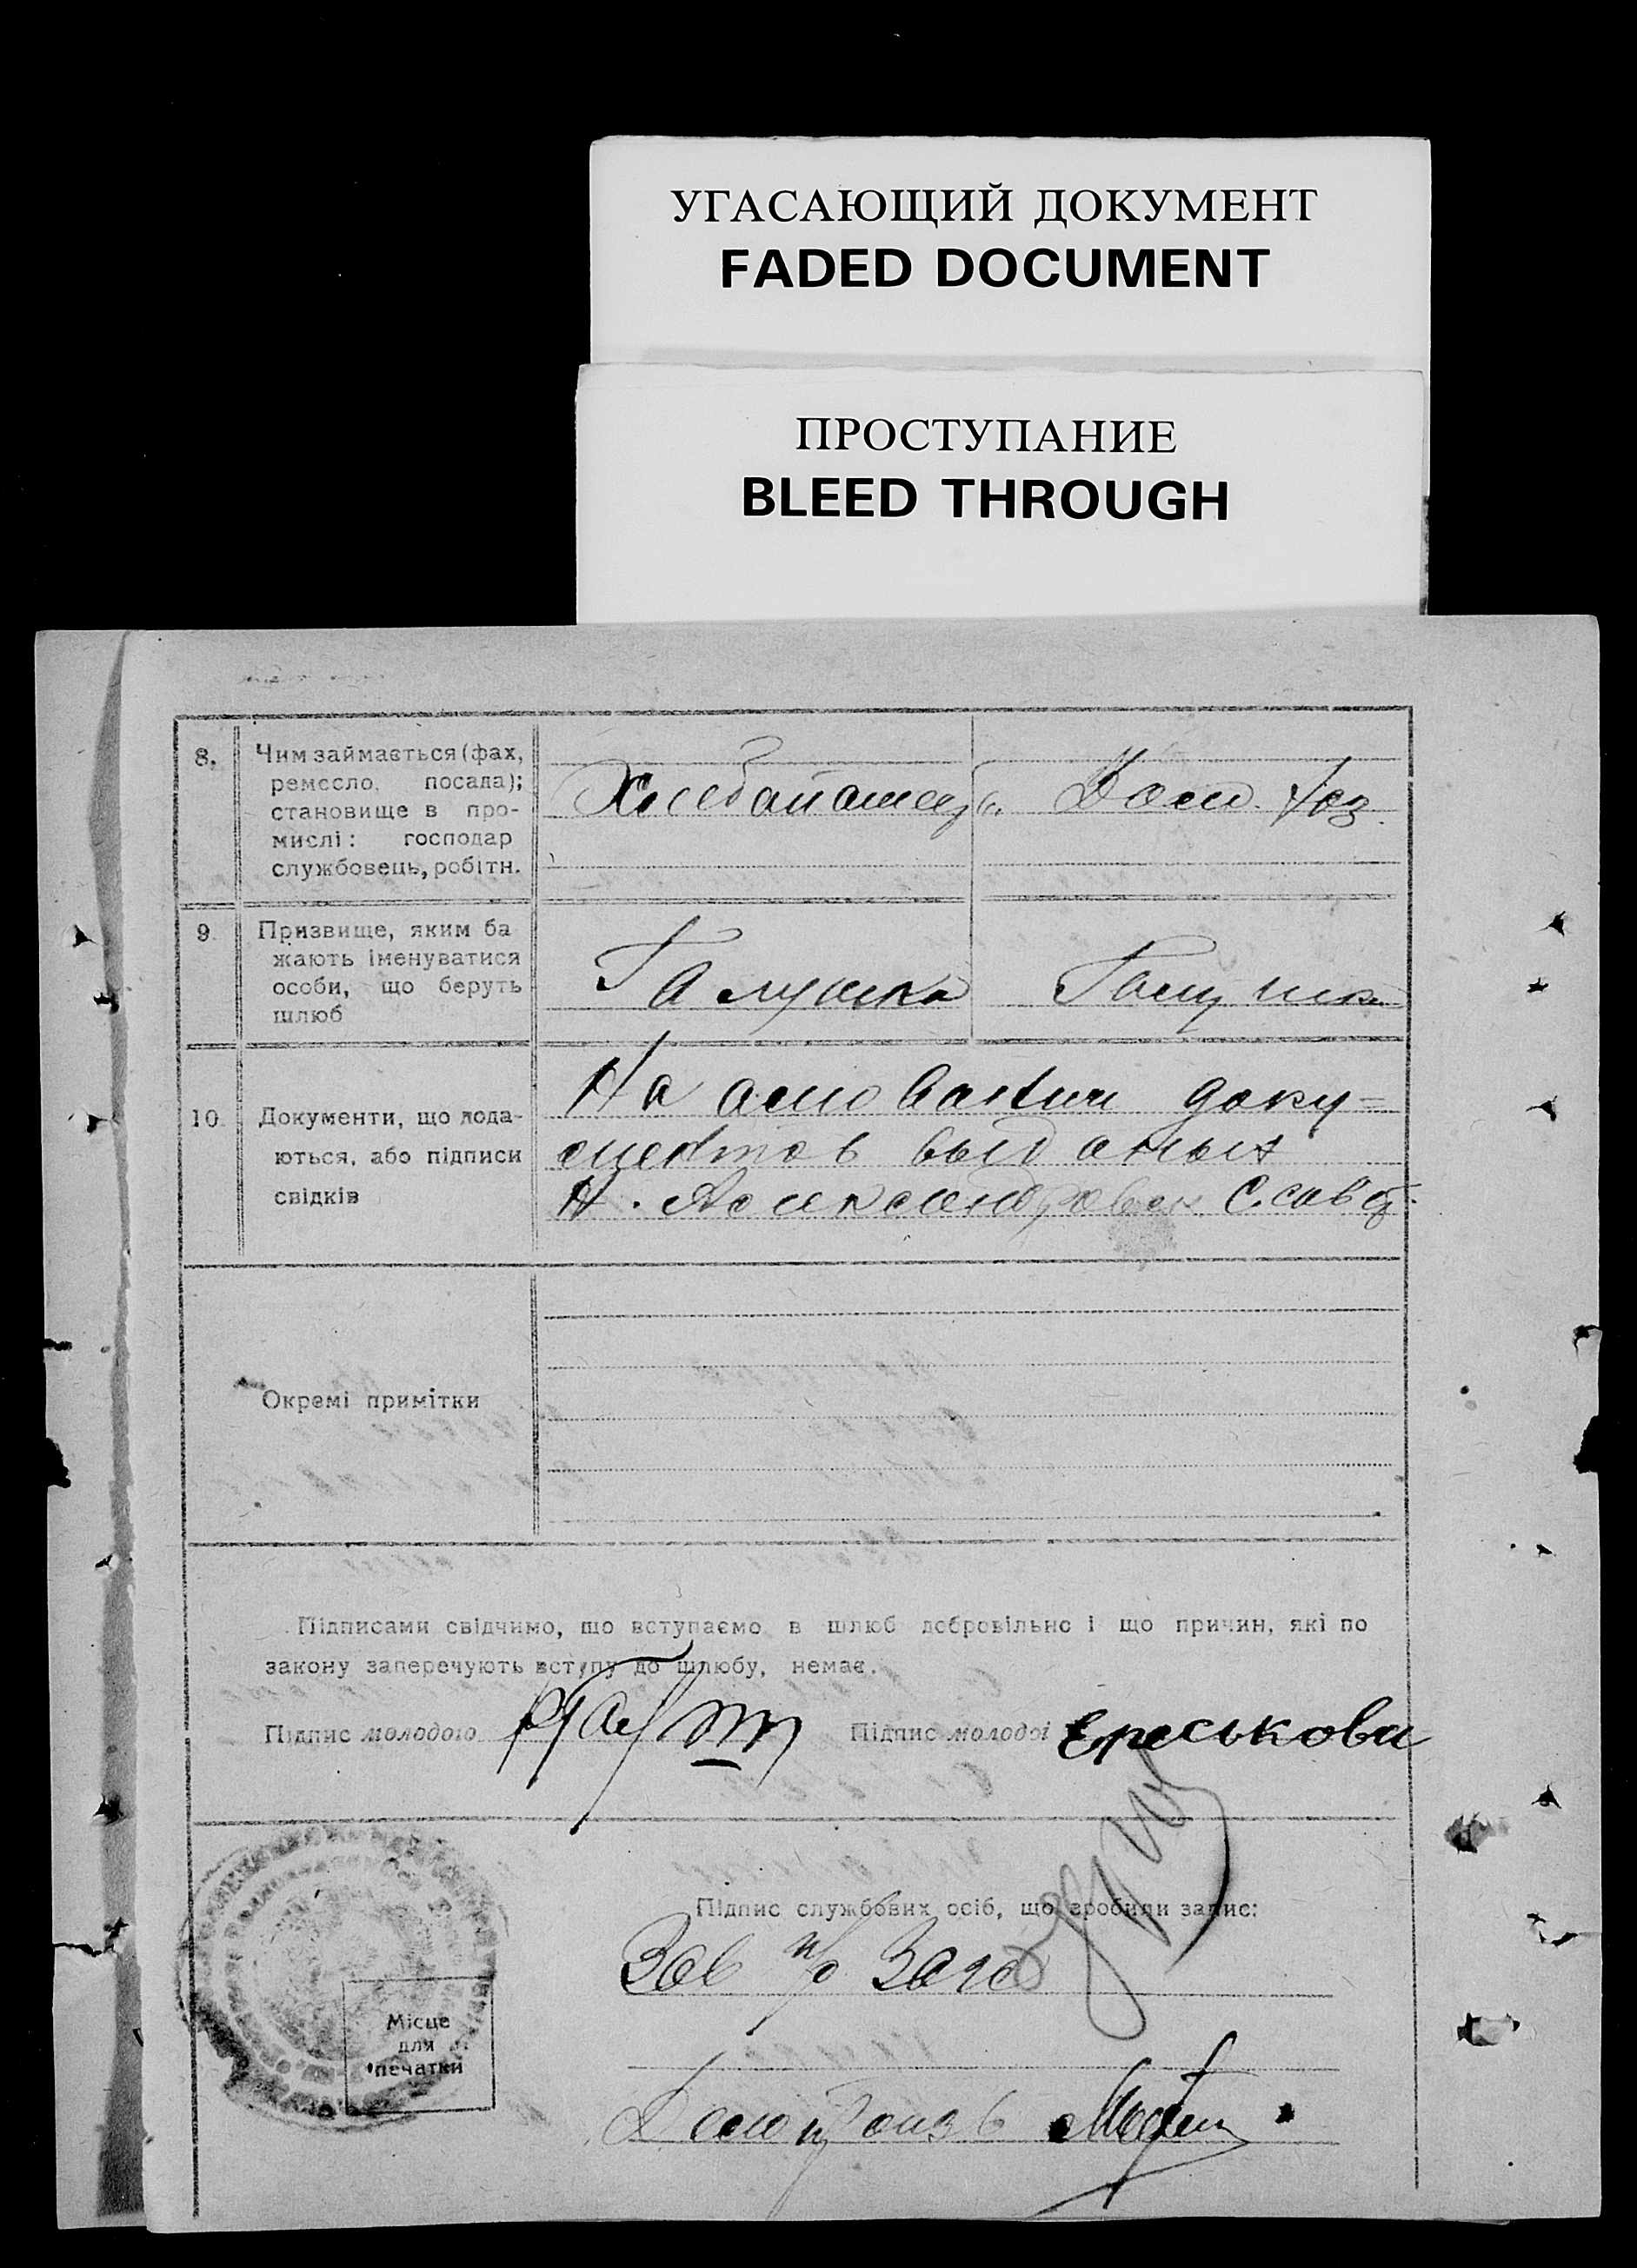 УГАСАЮЩИЙ ДОКУМЕНТ
FADED DOCUMENT
ПРОСТУПАНИЕ
BLEED THROUGH
8.
Чим займається (фах,
ремесло, посада);
становище в про-
мислі: господар
службовець, робітн.
Хлебопашец
Дом. хоз.
9.
Призвище, яким ба
жають іменуватися
особи, що беруть
шлюб
Галушка
Галушка
10.
Документи, що пода-
ються, або підписи
свідків
На основании доку-
ментов выданых
Н. Александровск С. сов
Окремі примітки
Підписами свідчимо, що вступаємо в шлюб добровільно і що причин, які по
закону заперечують вступу до шлюбу, немає.
Підпис молодого
Підпис молодої Ереськова
Підпис службових осіб, що зробили запис:
Зав п/о Загс
Місце
для
печатки
Делопроизв